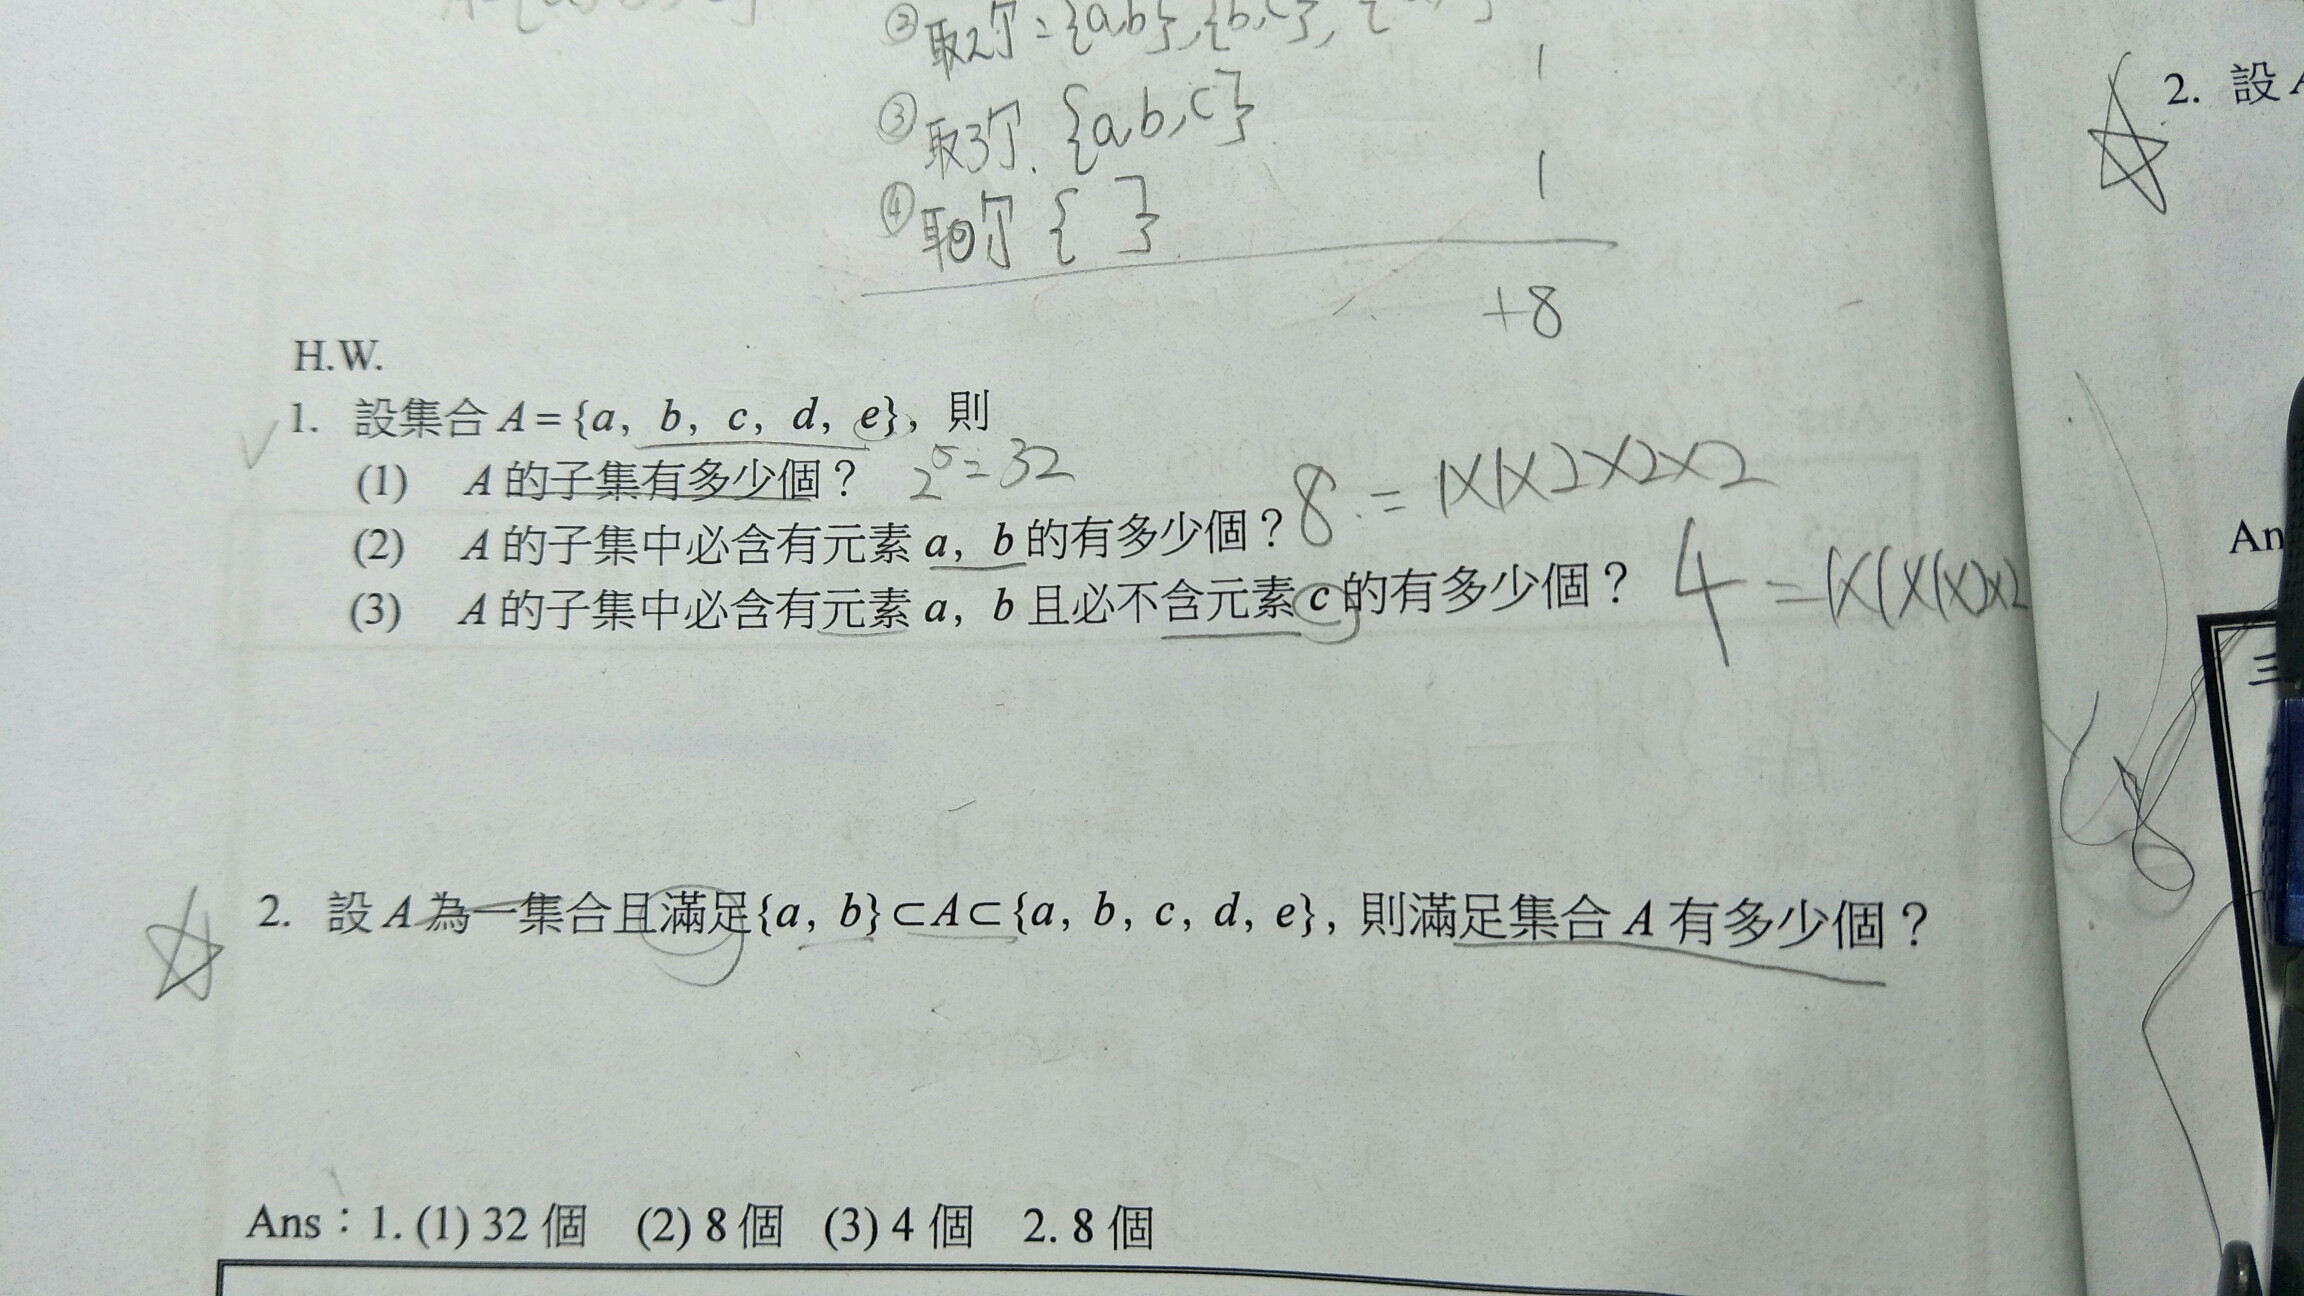 ②取2個={a,b},{b,c},{
1
③取3個.{a,b,c}
1
④取0個{ }
+8
2. 設
H.W.
1. 設集合 A={a, b, c, d, e}, 則
(1) A 的子集有多少個? 2⁵=32
(2) A 的子集中必含有元素 a, b 的有多少個? 8=1×1×2×2×2
(3) A 的子集中必含有元素 a, b 且必不含元素 c 的有多少個? 4=1×1×1×2×2
An
三
2. 設 A 為一集合且滿足{a, b}⊂A⊂{a, b, c, d, e}, 則滿足集合 A 有多少個?
Ans:1. (1) 32 個 (2) 8 個 (3) 4 個 2. 8 個